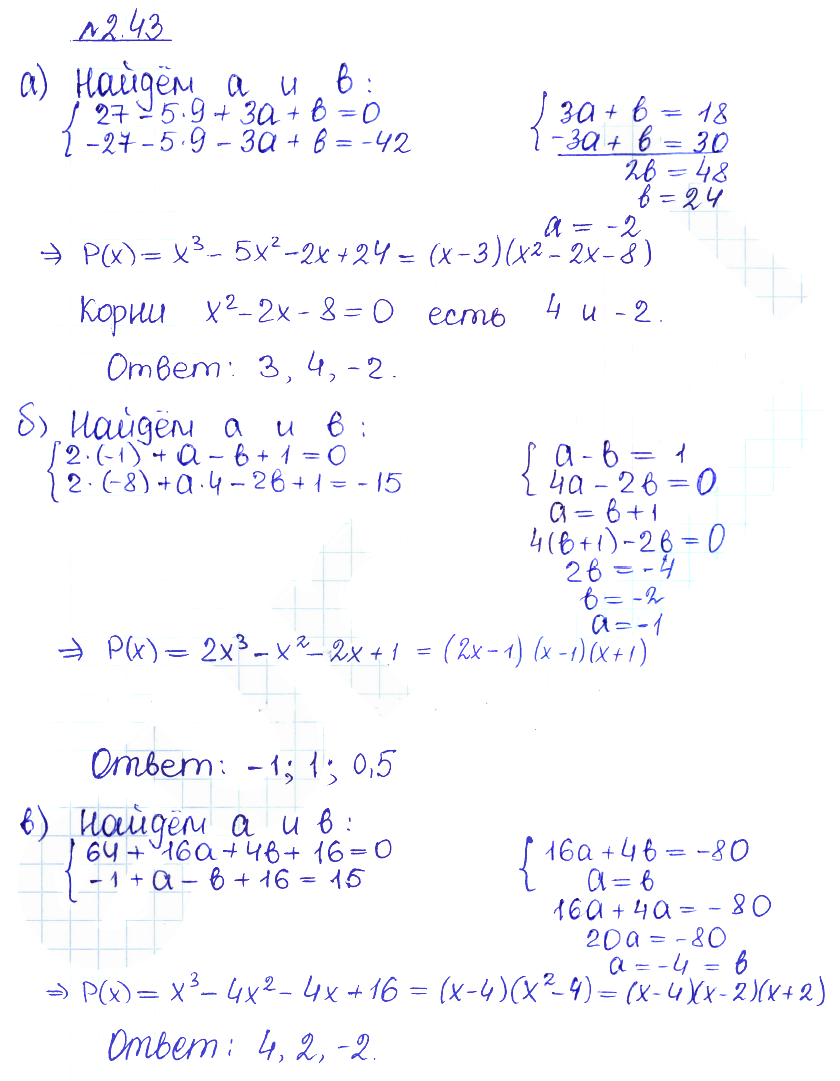 №2.43
а) Найдём а и в:
{ 27 - 5·9 + 3а + в = 0
{ -27 - 5·9 - 3а + в = -42
{ 3а + в = 18
{ -3а + в = 30
2в = 48
в = 24
а = -2
⇒ P(x) = x³ - 5x² - 2x + 24 = (x-3)(x² - 2x - 8)
Корни x² - 2x - 8 = 0 есть 4 и -2.
Ответ: 3, 4, -2.
б) Найдём а и в:
{ 2·(-1) + а - в + 1 = 0
{ 2·(-8) + а·4 - 2в + 1 = -15
{ а - в = 1
{ 4а - 2в = 0
а = в + 1
4(в+1) - 2в = 0
2в = -4
в = -2
а = -1
⇒ P(x) = 2x³ - x² - 2x + 1 = (2x-1)(x-1)(x+1)
Ответ: -1; 1; 0,5
в) Найдём а и в:
{ 64 + 16а + 4в + 16 = 0
{ -1 + а - в + 16 = 15
{ 16а + 4в = -80
{ а = в
16а + 4а = -80
20а = -80
а = -4 = в
⇒ P(x) = x³ - 4x² - 4x + 16 = (x-4)(x²-4) = (x-4)(x-2)(x+2)
Ответ: 4, 2, -2.